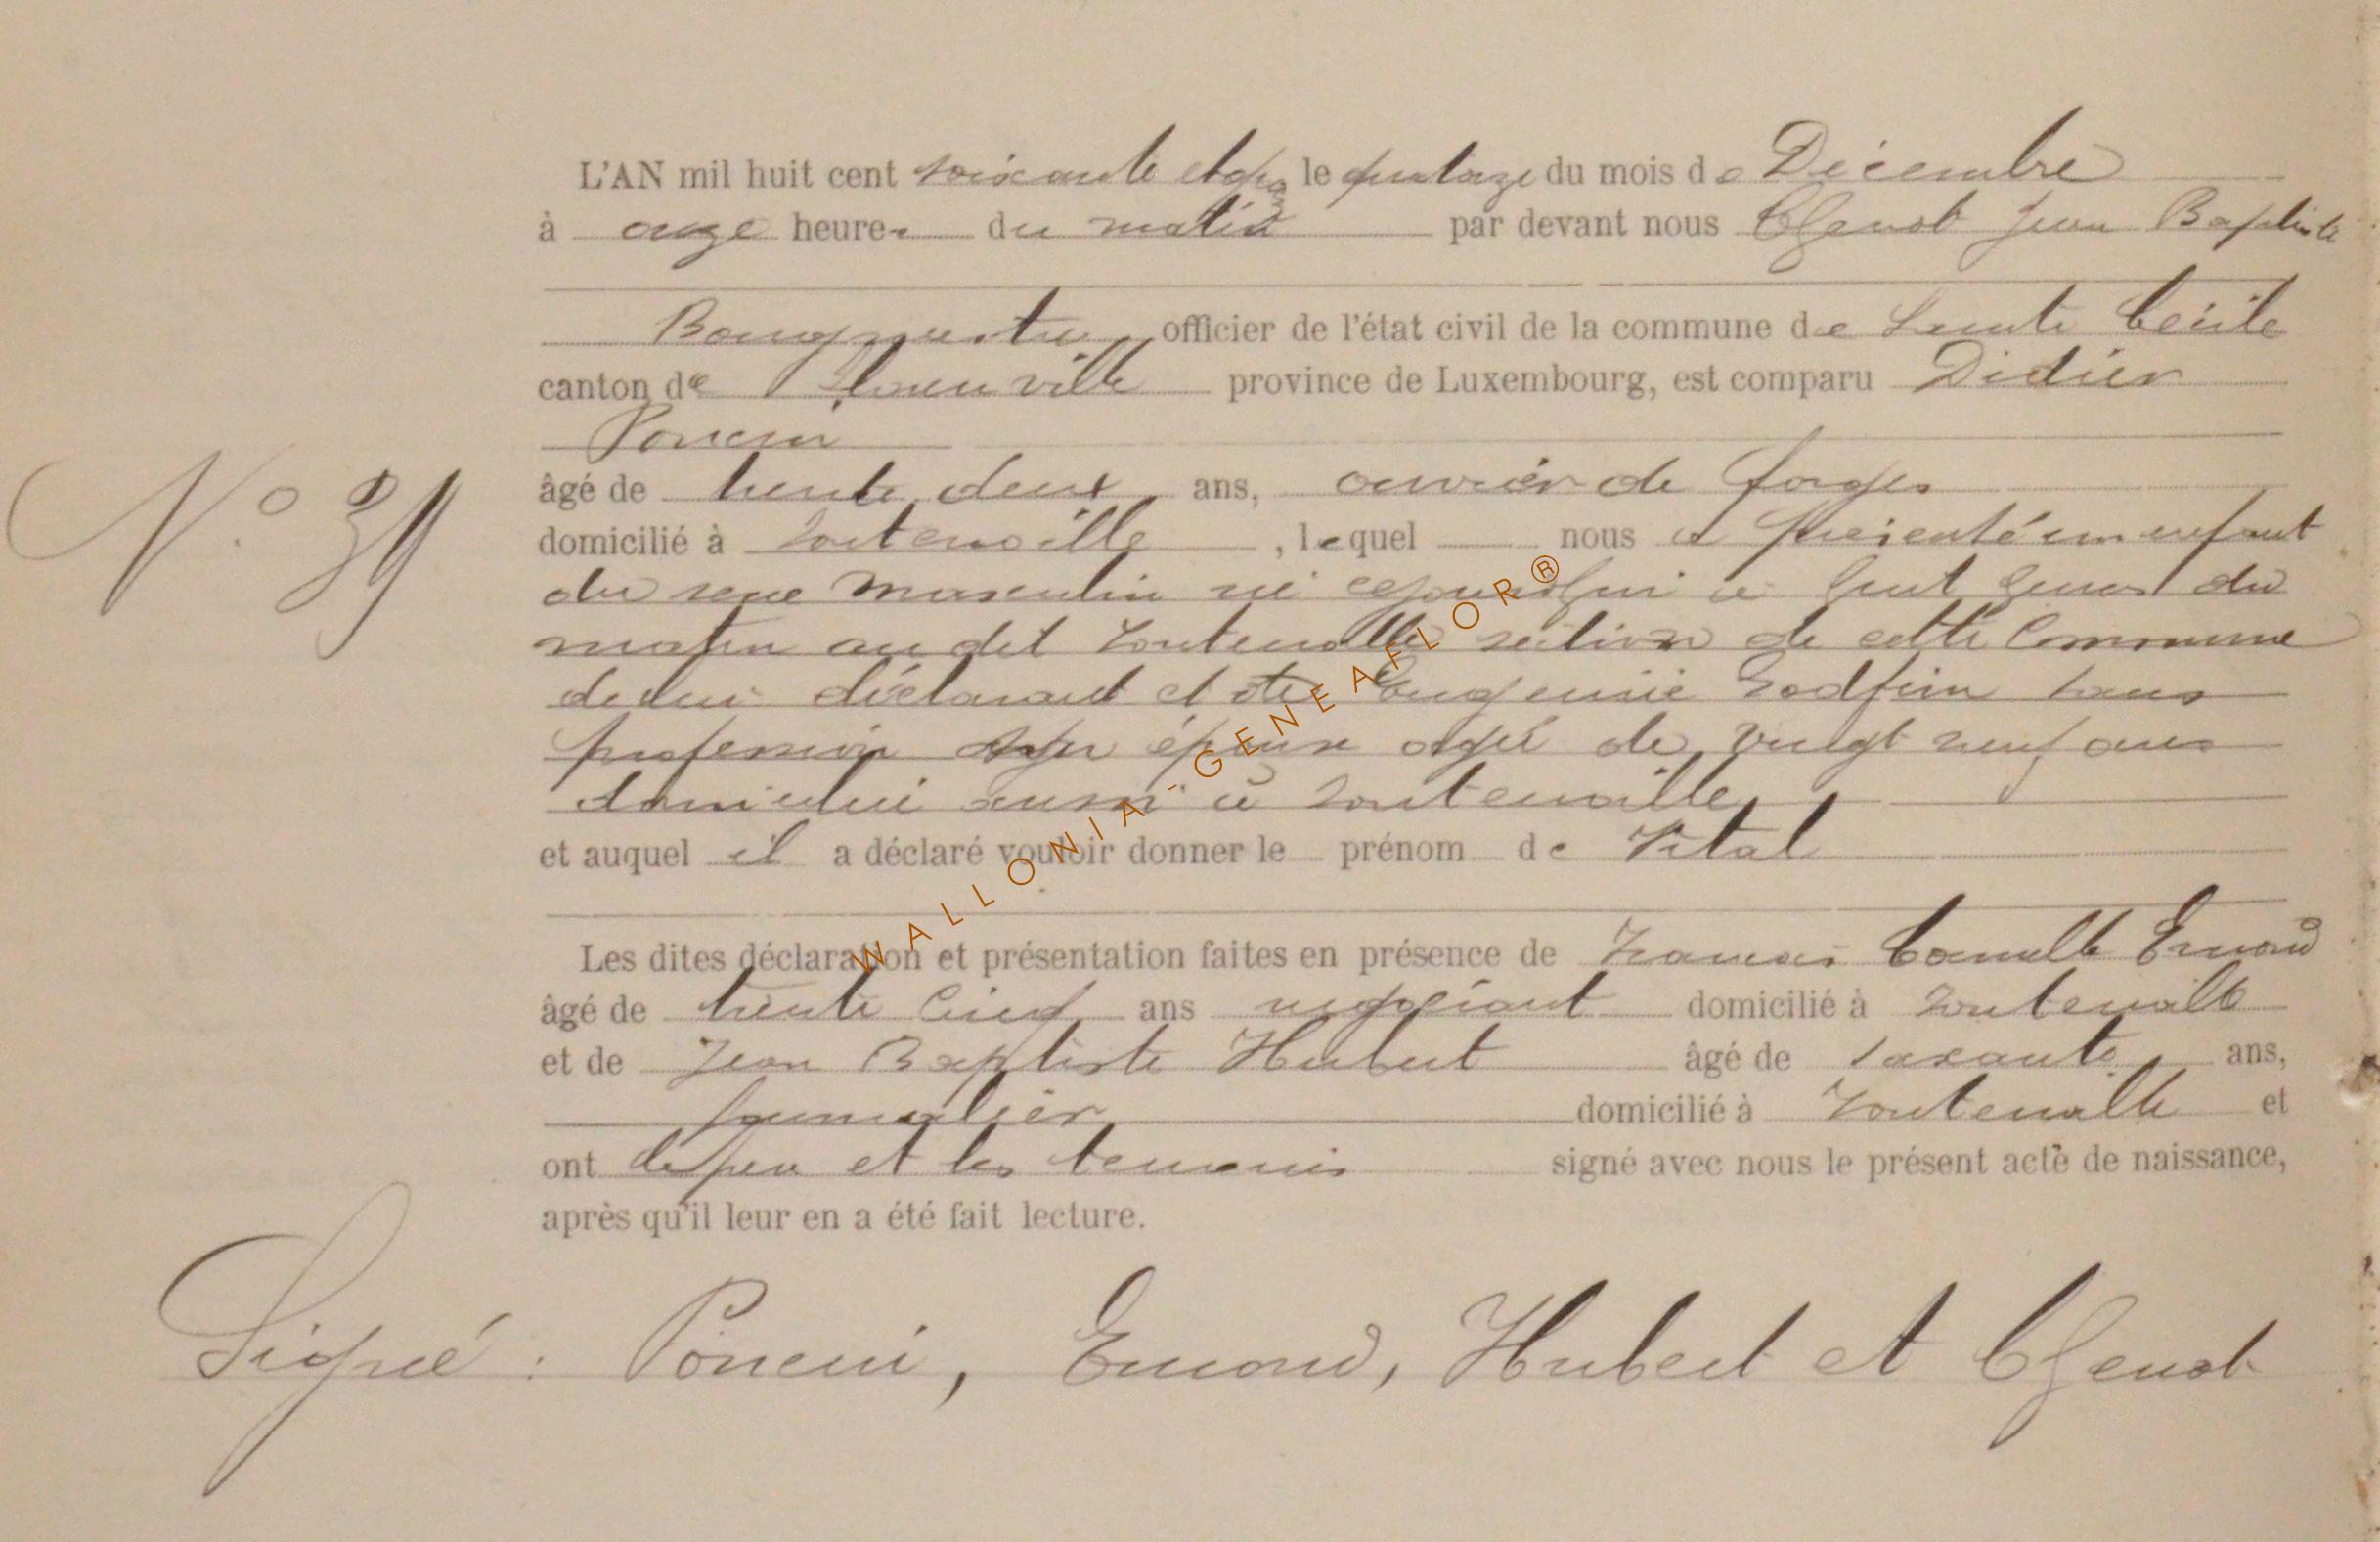 L'AN mil huit cent soixante et le quatorze du mois de Décembre
à onze heures du matin par devant nous Clenot Jean Baptiste
Bourgmestre officier de l'état civil de la commune de Sainte Cécile
canton de Florenville province de Luxembourg, est comparu Didier
Poncin
N° 39
âgé de trente deux ans, ouvrier de forges
domicilié à Fontenoille, lequel nous a présenté un enfant
du sexe masculin né cejourd'hui à huit heures du
matin au dit Fontenoille section de cette Commune
de lui déclarant et de Eugenie Godfrin sans
profession son épouse agée de vingt neuf ans
domiciliée aussi à Fontenoille
et auquel il a déclaré vouloir donner le prénom de Vital
Les dites déclaration et présentation faites en présence de François Camille Emond
âgé de trente cinq ans négociant domicilié à Fontenoille
et de Jean Baptiste Hubert âgé de soixante ans,
journalier domicilié à Fontenoille et
ont le père et les temoins signé avec nous le présent acte de naissance,
après qu'il leur en a été fait lecture.
Signé : Poncin, Emond, Hubert et Clenot
WALLONIA-GENEAFLOR®